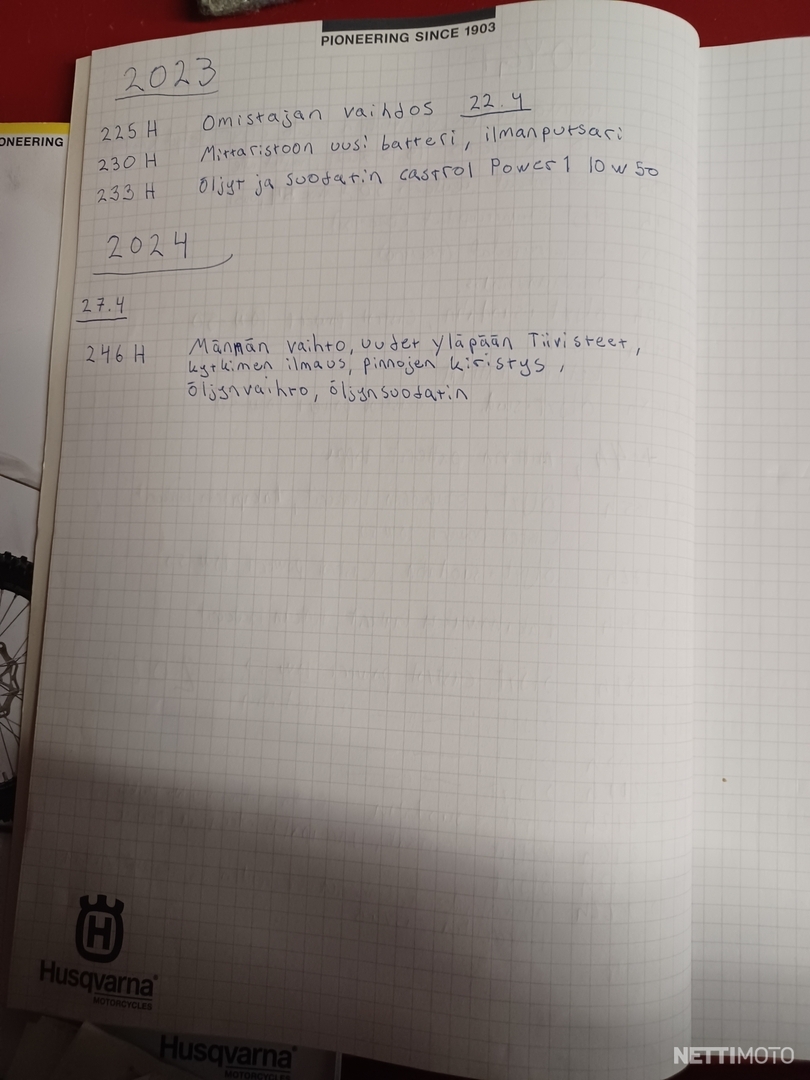 PIONEERING SINCE 1903
ONEERING
2023
225 H Omistajan vaihdos 22.4
230 H Mittaristoon uusi batteri, ilmanputsari
233 H Öljyt ja suodatin castrol Power 1 10w50
2024
27.4
246 H Männän vaihto, uudet yläpään Tiivisteet,
kytkimen ilmaus, pinnojen kiristys,
öljynvaihto, öljynsuodatin
H
Husqvarna
MOTORCYCLES
Husqvarna
MOTORCYCLES
NETTIMOTO